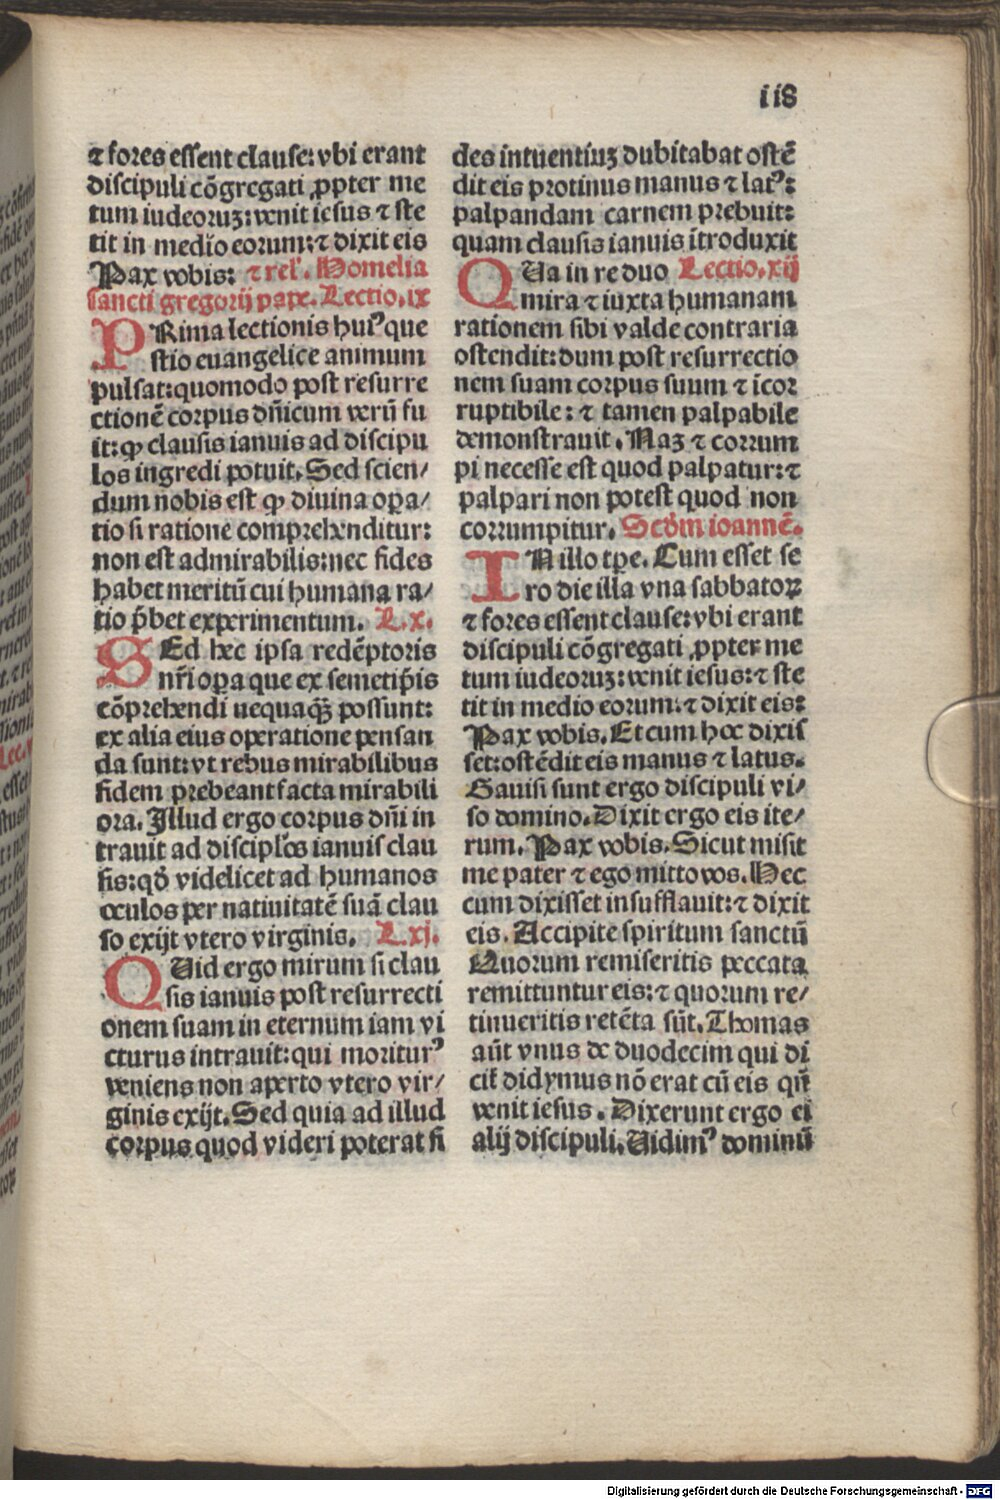 118
⁊ fores essent clause: vbi erant
discipuli cõgregati ꝓpter me
tum iudeoruꝫ: venit iesus ⁊ ste
tit in medio eorum: ⁊ dixit eis
Pax vobis: ⁊ rel'. Homelia
sancti gregorij pape. Lectio. ix
PRima lectionis huiꝰ que
stio euangelice animum
pulsat: quomodo post resurre
ctionē corpus dñicum verū fu
it: ꝙ clausis ianuis ad discipu
los ingredi potuit. Sed scien/
dum nobis est ꝙ diuina oꝑa/
tio si ratione comprehenditur:
non est admirabilis: nec fides
habet meritū cui humana ra/
tio p̄bet experimentum. L. x.
SEd hec ipsa redēptoris
nr̄i oꝑa que ex semetip̄is
cōprehendi nequaꝗ̄ possunt:
ex alia eius operatione pensan
da sunt: vt rebus mirabilibus
fidem prebeant facta mirabili
ora. Illud ergo corpus dñi in
trauit ad discipl'os ianuis clau
sis: qđ videlicet ad humanos
oculos per natiuitatē suā clau
so exijt vtero virginis. L. xj.
QUid ergo mirum si clau
sis ianuis post resurrecti
onem suam in eternum iam vi
cturus intrauit: qui morituꝰ
veniens non aperto vtero vir/
ginis exijt. Sed quia ad illud
corpus quod videri poterat fi
des intuentiuꝫ dubitabat ostē
dit eis protinus manus ⁊ latꝰ:
palpandam carnem prebuit:
quam clausis ianuis ītroduxit
QUa in re duo Lectio. xij
mira ⁊ iuxta humanam
rationem sibi valde contraria
ostendit: dum post resurrectio
nem suam corpus suum ⁊ īcor
ruptibile: ⁊ tamen palpabile
demonstrauit. Naꝫ ⁊ corrum
pi necesse est quod palpatur: ⁊
palpari non potest quod non
corrumpitur. Scđm ioannē.
IN illo tp̄e. Cum esset se
ro die illa vna sabbatoꝝ
⁊ fores essent clause: vbi erant
discipuli cōgregati ꝓpter me
tum iudeoruꝫ: venit iesus: ⁊ ste
tit in medio eorum: ⁊ dixit eis:
Pax vobis. Et cum hoc dixis
set: ostēdit eis manus ⁊ latus.
Gauisi sunt ergo discipuli vi/
so domino. Dixit ergo eis ite/
rum. Pax vobis. Sicut misit
me pater ⁊ ego mitto vos. Hec
cum dixisset insufflauit: ⁊ dixit
eis. Accipite spiritum sanctū
Quorum remiseritis peccata
remittuntur eis: ⁊ quorum re/
tinueritis retēta sūt. Thomas
aūt vnus de duodecim qui di
cit̄ didymus nō erat cū eis qñ
venit iesus. Dixerunt ergo ei
alij discipuli. Uidimꝰ dominū
Digitalisierung gefördert durch die Deutsche Forschungsgemeinschaft - DFG